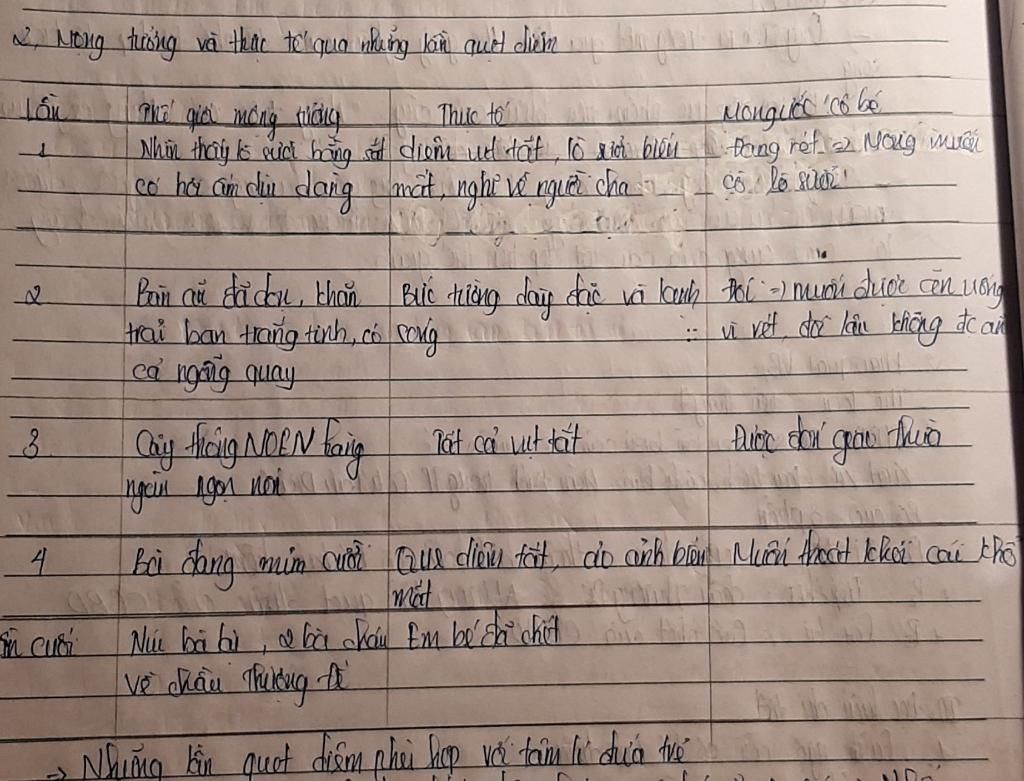 2, Mộng tưởng và thực tế qua những lần quẹt diêm
Lần Thế giới mộng tưởng Thực tế Mong ước cô bé
1 Nhìn thấy lò sưởi bằng sắt diêm vụt tắt, lò sưởi biến Đang rét => Mong muốn
có hơi ấm dịu dàng mất, nghĩ về người cha có lò sưởi
2 Bàn ăn đã dọn, khăn Bức tường dày đặc và lạnh Đói => muốn được ăn uống
trải bàn trắng tinh, có cóng vì rét, đói lâu không đc ăn
cả ngỗng quay
3 Cây thông NOEN hàng Tất cả vụt tắt Được đón giao thừa
ngàn ngọn nến
4 Bà đang mỉm cười Que diêm tắt, ảo ảnh biến Muốn thoát khỏi cái khổ
mất
cuối Níu bà lại, 2 bà cháu Em bé đã chết
về chầu Thượng đế
-> Những lần quẹt diêm phù hợp với tâm lí đứa trẻ